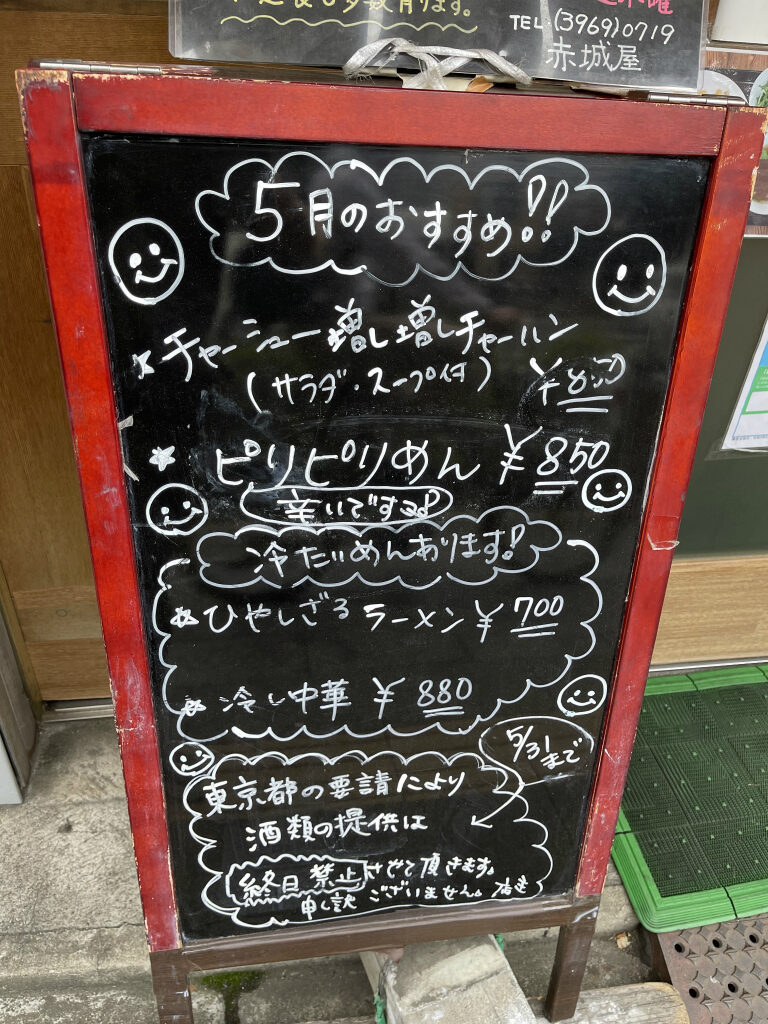 TEL.(3969)0719
赤城屋
5月のおすすめ!!
チャーシュー増し増しチャーハン
(サラダ・スープ付)
ピリピリめん ¥850
辛いですョ!
冷たいめんあります!
ひやしざるラーメン ¥700
冷し中華 ¥880
5/31まで
東京都の要請により
酒類の提供は
終日禁止させて頂きます。
申し訳ございません。店主